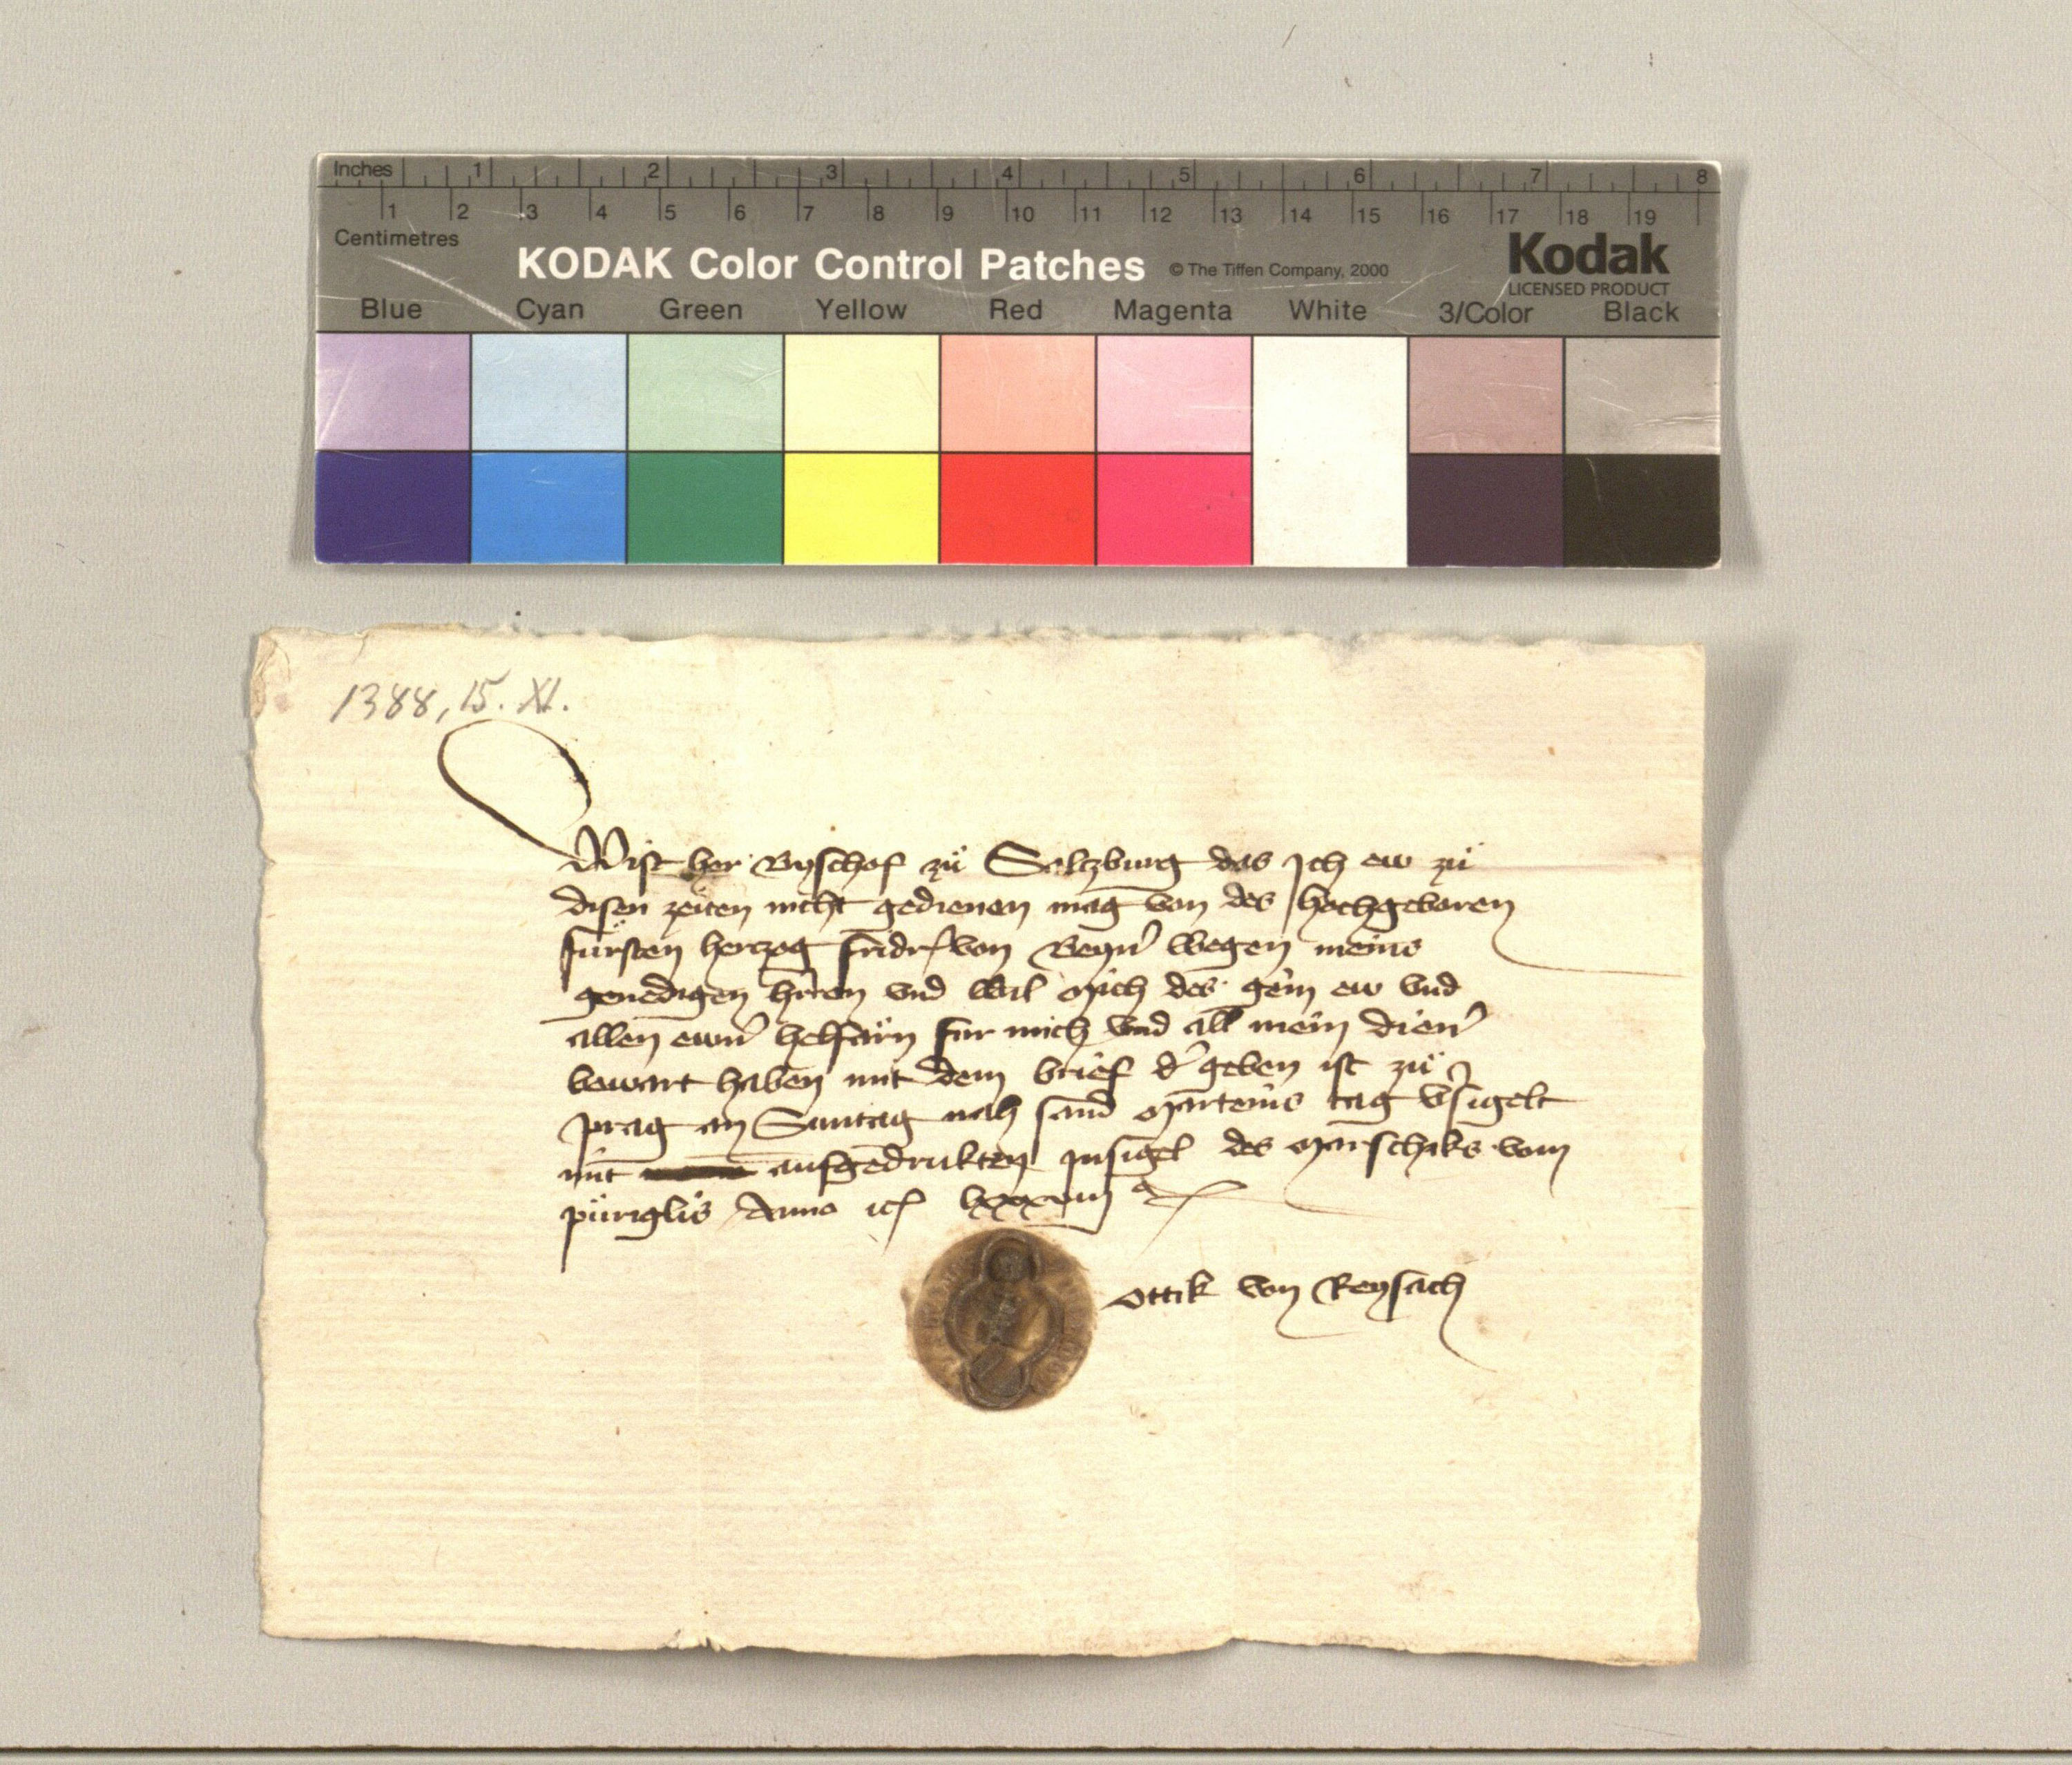 Inches 1 2 3 4 5 6 7 8
1 2 3 4 5 6 7 8 9 10 11 12 13 14 15 16 17 18 19
Centimetres
KODAK Color Control Patches © The Tiffen Company, 2000 Kodak
LICENSED PRODUCT
Blue Cyan Green Yellow Red Magenta White 3/Color Black
1388, 15. XI.
Wist her Byschof zu̎ Salzburg das Ich ew zu̎
disen zeiten nicht gedienen mag von des hochgeboren
fürsten herczog fridr von Beyrn wegen meins
genedigen hren vnd wil mich des gein ew vnd
allen ewrn helfärn fur mich vnd all mein dien
bewart haben mit dem brief d geben ist zu̎
prag an Suntag nah sand marteins tag vsigelt
mit aufgedrukten Insigel des marschiks vom
pürglis Anno lxxxviii
Ottik von Reysach